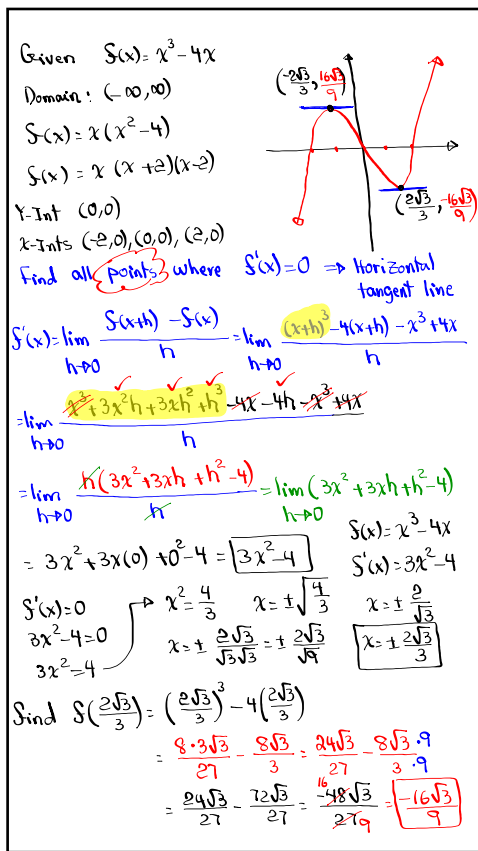 Given f(x) = x³ - 4x
Domain: (-∞,∞)
f(x) = x(x² - 4)
f(x) = x (x+2)(x-2)
Y-Int (0,0)
x-Ints (-2,0),(0,0),(2,0)
(-2√3/3, 16√3/9)
(2√3/3, -16√3/9)
Find all points where f'(x)=0 ⇒ Horizontal
tangent line
f'(x) = lim h→0 (f(x+h) - f(x))/h = lim h→0 ((x+h)³ - 4(x+h) - x³ + 4x)/h
= lim h→0 (x³ + 3x²h + 3xh² + h³ - 4x - 4h - x³ + 4x)/h
= lim h→0 h(3x² + 3xh + h² - 4)/h = lim h→0 (3x² + 3xh + h² - 4)
= 3x² + 3x(0) + 0² - 4 = 3x² - 4
f(x) = x³ - 4x
f'(x) = 3x² - 4
f'(x) = 0
3x² - 4 = 0
3x² = 4
x² = 4/3 x = ±√(4/3) x = ± 2/√3
x = ± 2√3/√3√3 = ± 2√3/√9 x = ± 2√3/3
find f(2√3/3) = (2√3/3)³ - 4(2√3/3)
= 8·3√3/27 - 8√3/3 = 24√3/27 - 8√3/3 ·9/·9
= 24√3/27 - 72√3/27 = -48√3/27 16 9 = -16√3/9